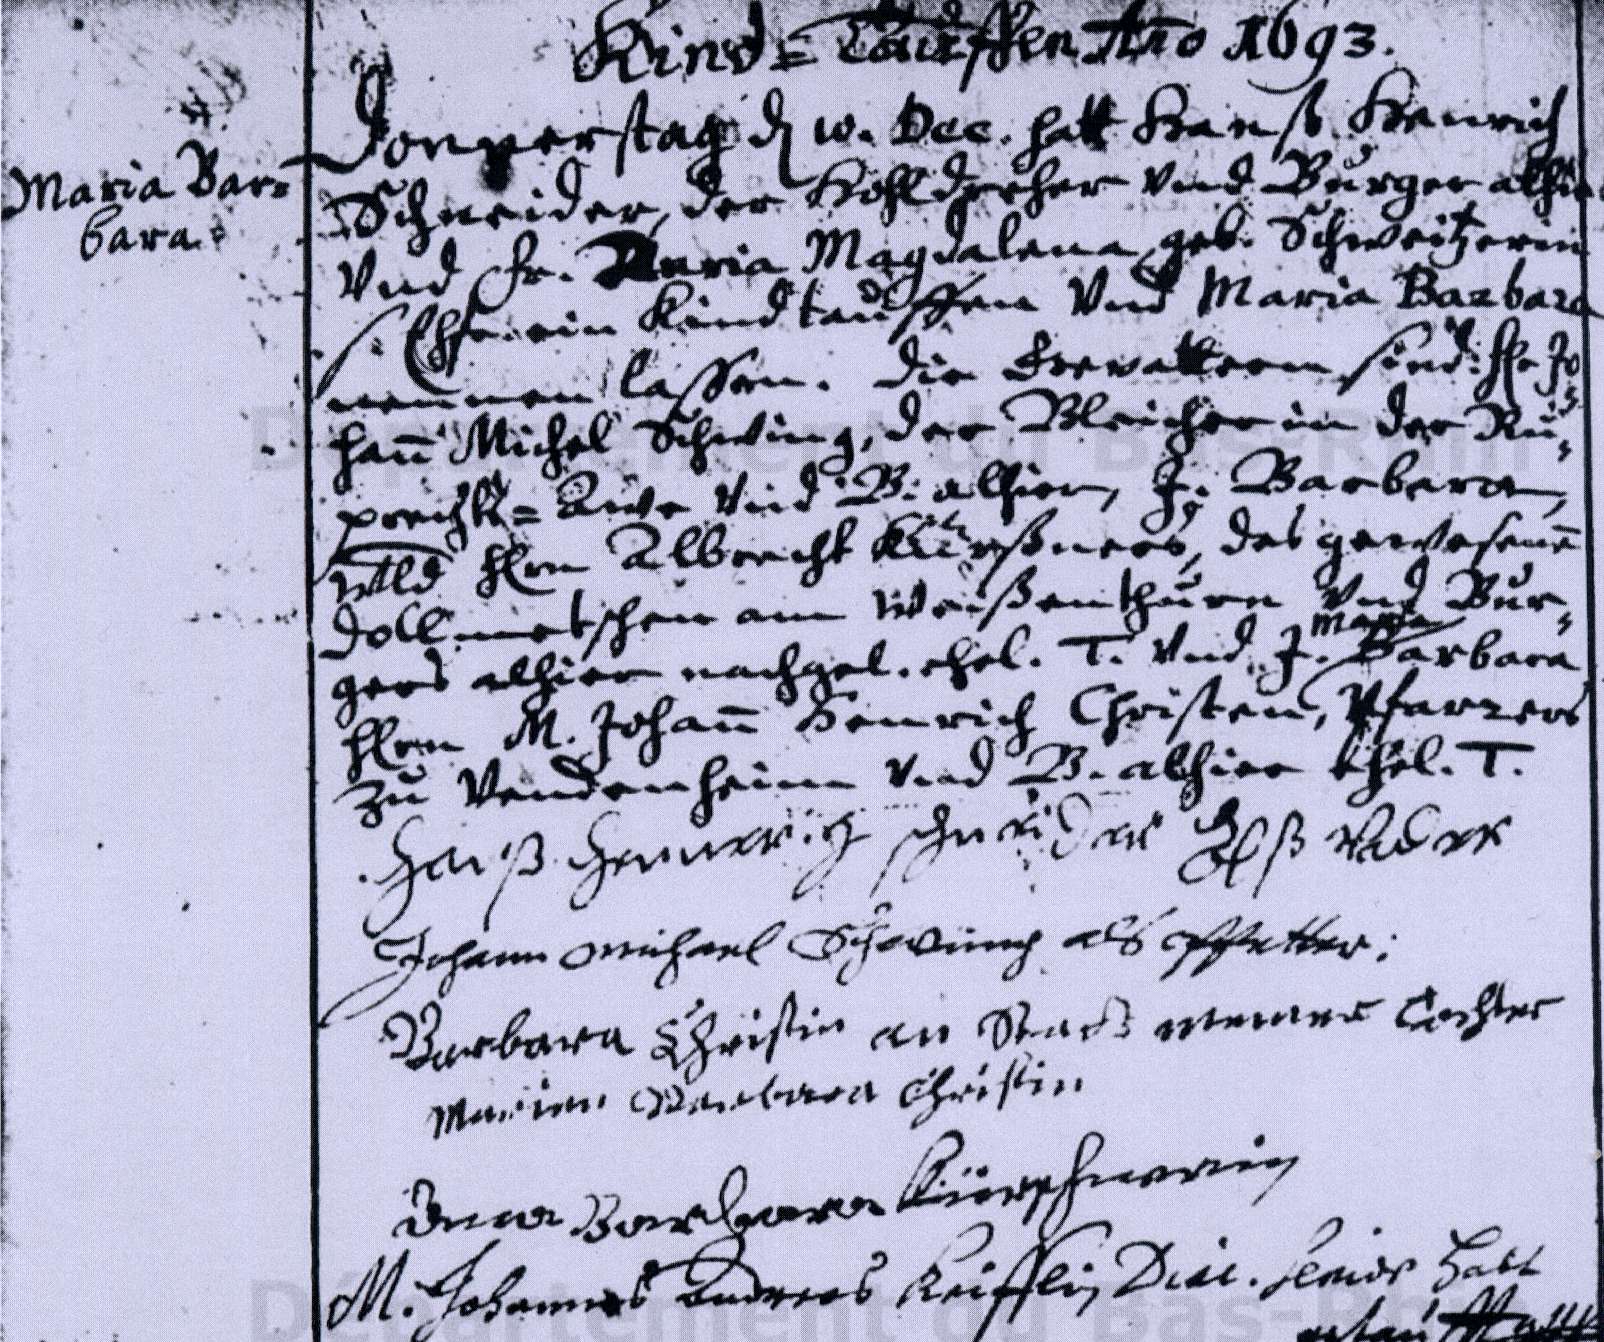 Kind=Tauffen Ano 1693.
Maria Bar=
bara.
Donnerstag d 10. Dec. hatt Hanß Henrich
Schneider, der Kohldreher Vnd Burger alhie
Vnd Fr. Maria Magdalena geb. Schweitzerin
s. Ehfr. ein Kind tauffen Vnd Maria Barbara
nennen lassen. Die Gevattern sind: H. Jo=
hañ Michel Schwing, der Bleicher in der Ru=
prechts=Awe Vnd B. alhier, J. Barbara,
wld Hrn Albrecht Kürßners, des gewesenen
Dollmetschen am Weißenthurn Vnd Bur=
gers alhier nachgel. ehel. T. Vnd J. Maria Barbara
Hrn M. Johañ Henrich Christen, Pfarrers
zu Vendenheim Vnd B. alhier Ehel. T.
Hanß Hennerich schneider Alß Vader
Johann Michael Schwing als Pfetter:
Barbara Christin an Statt meiner Tochter
Marien Barbara Christin
Anna Barbara Kürschnerin
M. Johannes Andreas Diac.